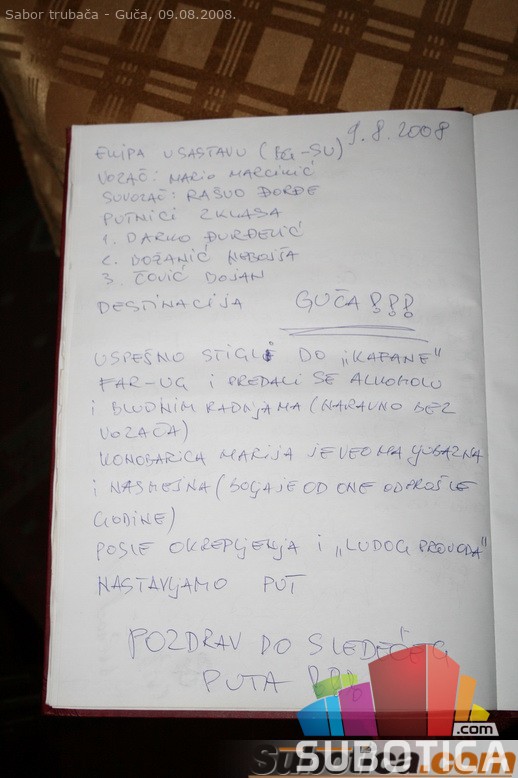 Sabor trubača - Guča, 09.08.2008.
9.8.2008
EKIPA U SASTAVU (BG-SU)
VOZAČ: MARIO MARCIKIĆ
SUVOZAČ: RAŠUO ĐORĐE
PUTNICI 2 KLASA
1. DARKO ĐURĐEVIĆ
2. BOŽANIĆ NEBOJŠA
3. ČOVIĆ BOJAN
DESTINACIJA GUČA!!!
USPEŠNO STIGLI DO „KAFANE"
FAR-UG I PREDALI SE ALKOHOLU
I BLUDNIM RADNJAMA (NARAVNO BEZ
VOZAČA)
KONOBARICA MARIJA JE VEOMA LJUBAZNA
I NASMEJNA (BOLJA JE OD ONE OD PROŠLE
GODINE)
POSLE OKREPLJENJA I „LUDOG PROVODA"
NASTAVLJAMO PUT
POZDRAV DO SLEDEĆEG
PUTA !!!
SUBOTICA .com
subotica.com